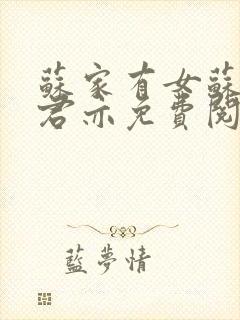 蘇家有女蘇
君亦免費閱
藍夢情